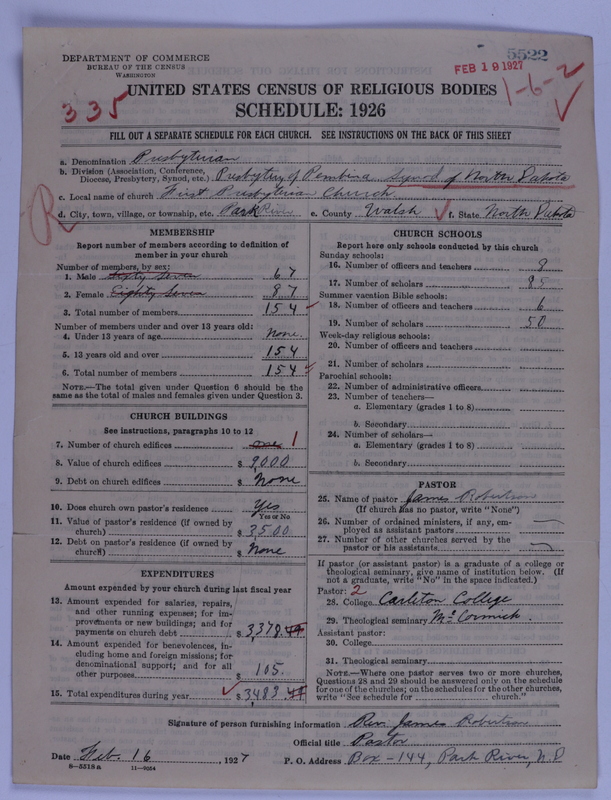 DEPARTMENT OF COMMERCE
BUREAU OF THE CENSUS
WASHINGTON
5522
FEB 19 1927
1-6-2
335
UNITED STATES CENSUS OF RELIGIOUS BODIES
SCHEDULE: 1926
FILL OUT A SEPARATE SCHEDULE FOR EACH CHURCH. SEE INSTRUCTIONS ON THE BACK OF THIS SHEET
a. Denomination Presbyterian
b. Division (Association, Conference, Diocese, Presbytery, Synod, etc.) Presbytery of Pembina Synod of North Dakota
c. Local name of church First Presbyterian Church
R
d. City, town, village, or township, etc. Park River e. County Walsh f. State North Dakota
MEMBERSHIP
Report number of members according to definition of
member in your church
Number of members, by sex:
1. Male Sixty Seven 67
2. Female Eighty Seven 87
3. Total number of members 154
Number of members under and over 13 years old:
4. Under 13 years of age None
5. 13 years old and over 154
6. Total number of members 154
NOTE.—The total given under Question 6 should be
same as the total of males and females given under Question 3.
CHURCH BUILDINGS
See instructions, paragraphs 10 to 12
7. Number of church edifices one 1
8. Value of church edifices $ 9000
9. Debt on church edifices $ None
10. Does church own pastor's residence? Yes
Yes or No
11. Value of pastor's residence (if owned by
church) $ 3500
12. Debt on pastor's residence (if owned by
church) $ None
EXPENDITURES
Amount expended by your church during last fiscal year
13. Amount expended for salaries, repairs,
and other running expenses; for im-
provements or new buildings; and for
payments on church debt $ 3,378.44
14. Amount expended for benevolences, in-
cluding home and foreign missions; for
denominational support; and for all
other purposes $ 105.
15. Total expenditures during year $ 3483.44
CHURCH SCHOOLS
Report here only schools conducted by this church
Sunday schools:
16. Number of officers and teachers 9
17. Number of scholars 95
Summer vacation Bible schools:
18. Number of officers and teachers 6
19. Number of scholars 50
Week-day religious schools:
20. Number of officers and teachers
21. Number of scholars
Parochial schools:
22. Number of administrative officers
23. Number of teachers—
a. Elementary (grades 1 to 8)
b. Secondary
24. Number of scholars—
a. Elementary (grades 1 to 8)
b. Secondary
PASTOR
25. Name of pastor James Robertson
(If church has no pastor, write "None")
26. Number of ordained ministers, if any, em-
ployed as assistant pastors
27. Number of other churches served by the
pastor or his assistants
If pastor (or assistant pastor) is a graduate of a college or
theological seminary, give name of institution below. (If
not a graduate, write "No" in the space indicated.)
Pastor: 2
28. College Carleton College
29. Theological seminary McCormick.
Assistant pastor:
30. College
31. Theological seminary
NOTE.—Where one pastor serves two or more churches,
Questions 28 and 29 should be answered only on the schedule
for one of the churches; on the schedules for the other churches,
write "See schedule for church."
Signature of person furnishing information Rev. James Robertson
Official title Pastor
Date Feb. 16, 1927 P. O. Address Box-144, Park River, N.D
8-5518a 11-9064